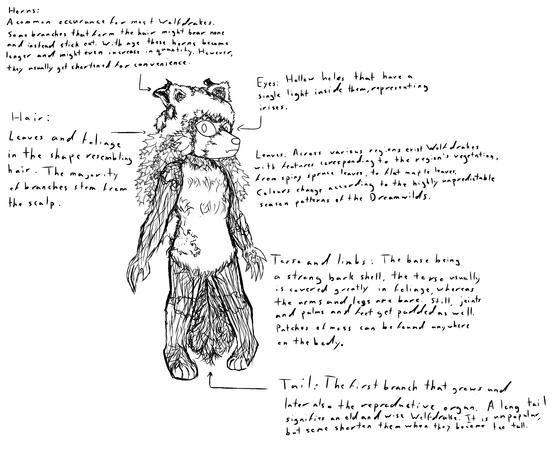 Horns:
A common occurance for most Wolfdrakes.
Some branches that form the hair might bear none
and instead stick out. With age these horns become
longer and might even increase in quantity. However,
they usually get shortened for convenience.
Eyes: Hollow holes that have a
single light inside them, representing
irises.
Hair:
Leaves and foliage
in the shape resembling
hair. The majority
of branches stem from
the scalp.
Leaves: Across various regions exist Wolfdrakes
with features corresponding to the region's vegetation,
from spiny spruce leaves, to flat maple leaves.
Colours change according to the highly unpredictable
season patterns of the Dreamwilds.
Torso and limbs: The base being
a strong bark shell, the torso usually
is covered greatly in foliage, whereas
the arms and legs are bare. Still, joints
and palms and feet get padded as well.
Patches of moss can be found anywhere
on the body.
Tail: The first branch that grows and
later also the reproductive organ. A long tail
signifies an old and wise Wolfdrake. It is unpopular,
but some shorten them when they become too tall.